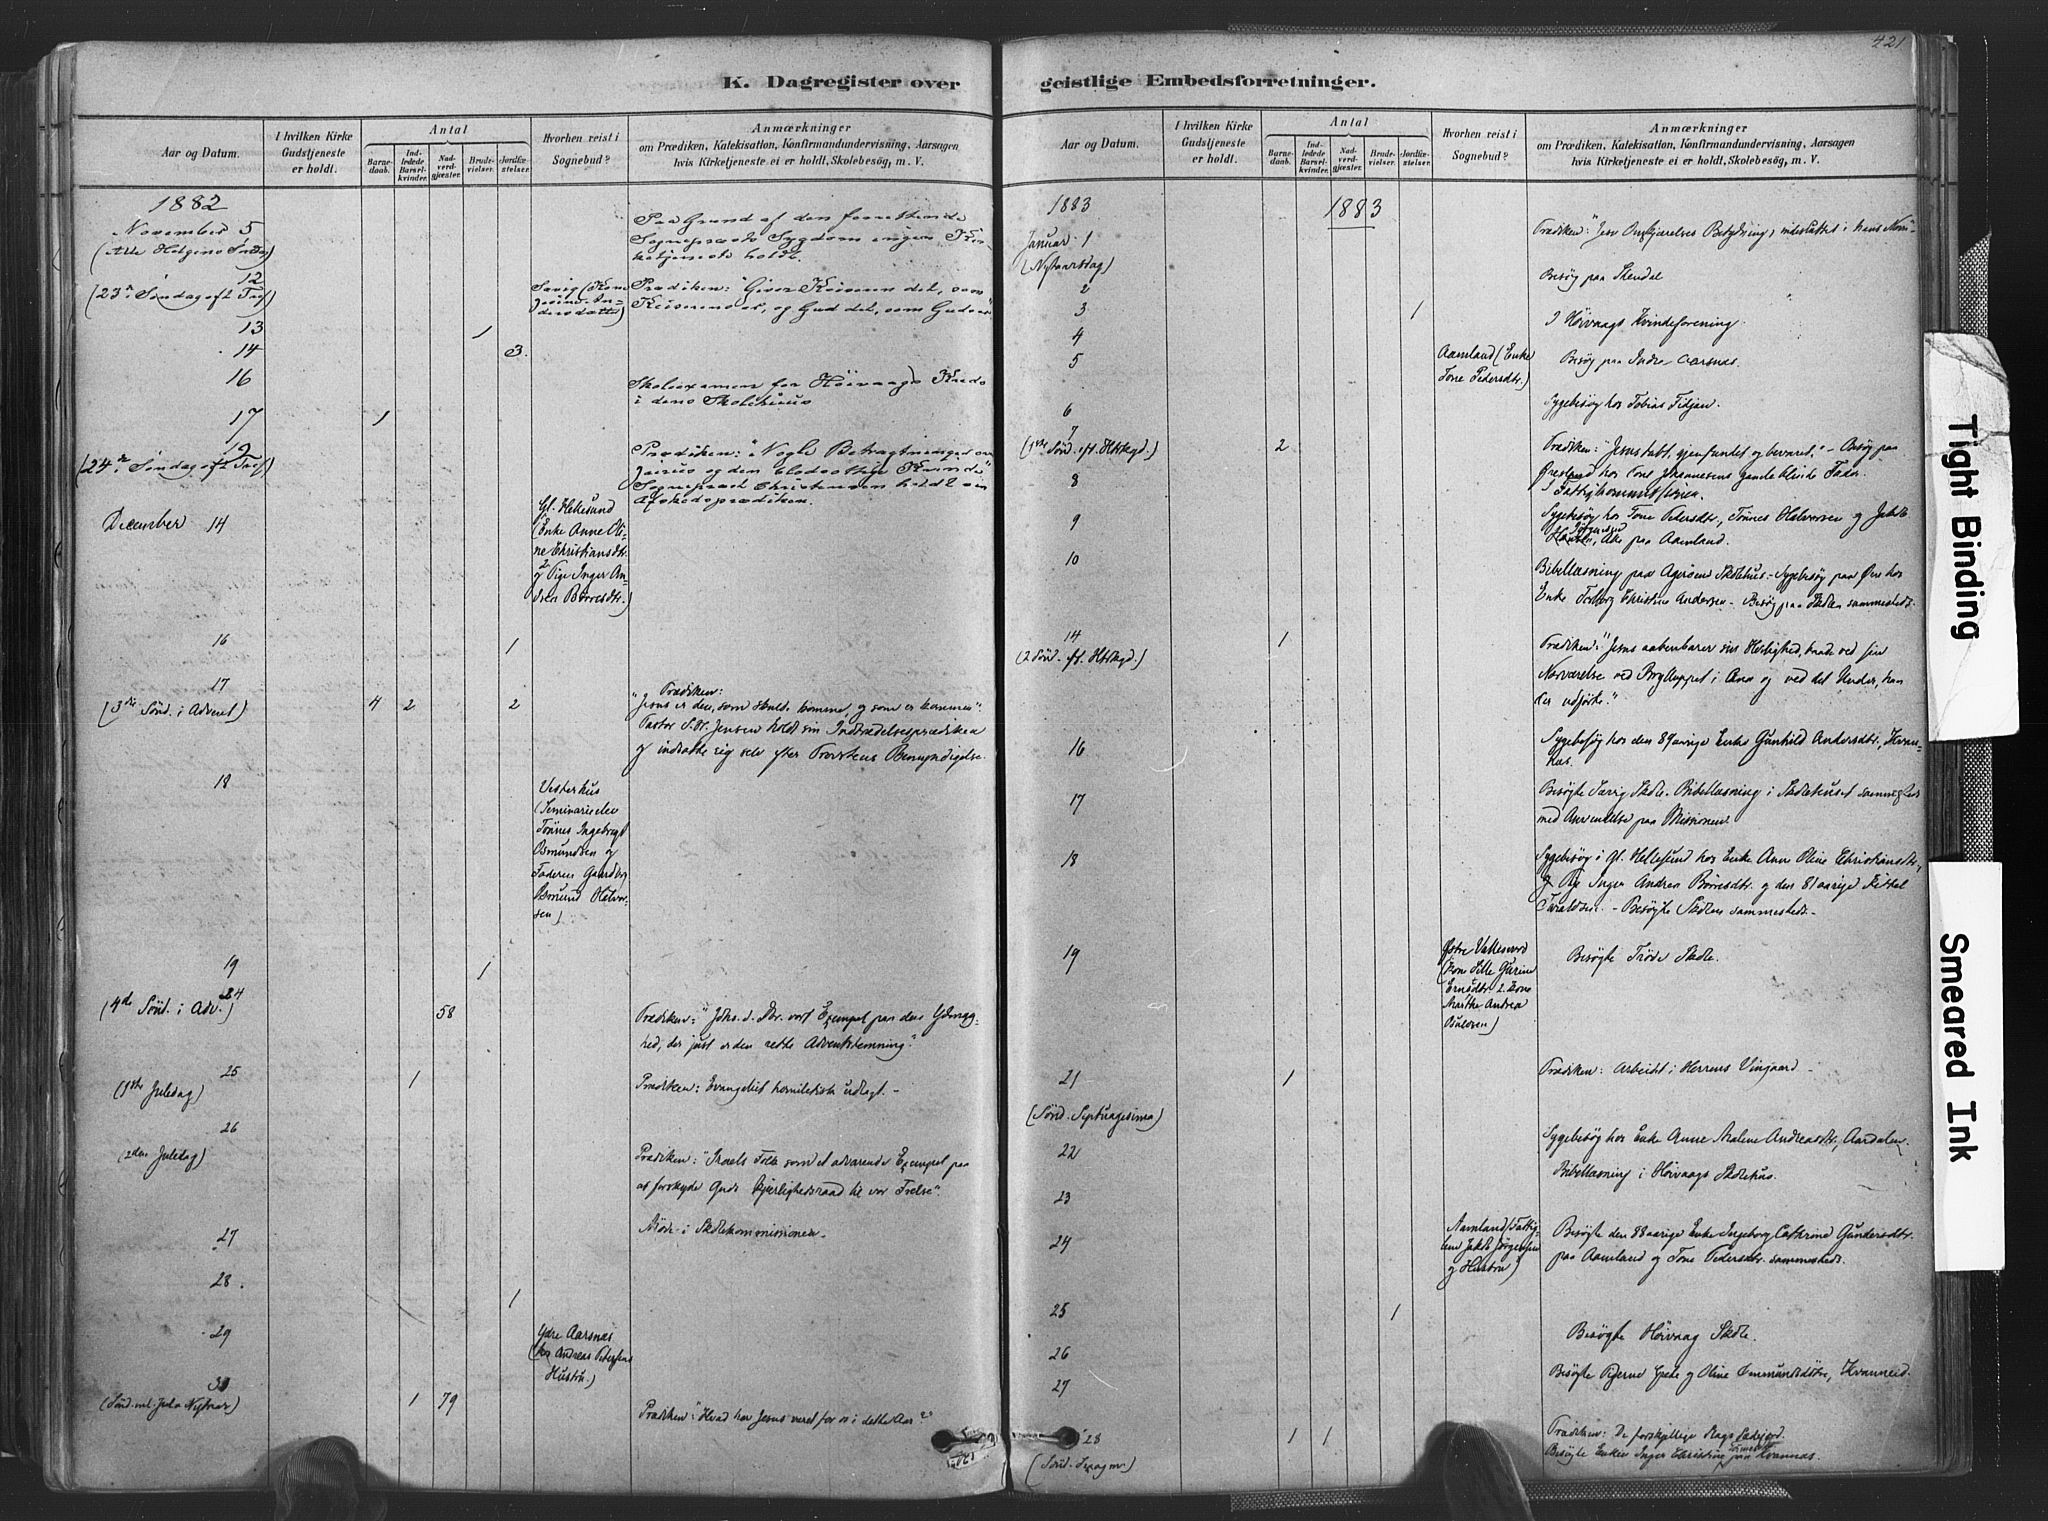 421
K. Dagregister over
Aar og Datum.
I hvilken Kirke
Gudstjeneste
er holdt.
Antal
Barne-
daab.
Ind-
ledede
Barsel-
kvinder.
Nad-
verd-
gjæster.
Brude-
vielser.
Jordfæ-
stelser.
Hvorhen reist i
Sognebud?
Anmærkninger
om Prædiken, Katekisation, Konfirmandundervisning, Aarsagen
hvis Kirketjeneste ei er holdt, Skolebesög, m. V.
1882
November 5
(Alle Helgens Sönd.)
Paa Grund af den forrettende
Sognepræsts Sygdom ingen Kir-
ketjeneste holdt.
12
(23de Søndag eft Tref)
Prædiken: "Giver Keiseren det, som
Keiserens er, og Gud det, som Guds er"
13
1
14
3.
16
Skoleexamen for Høivaags Kreds
i dens Skolehuus
17
1
19
(24de Søndag eft Tref)
Prædiken: "Nogle Betragtninger over
Jairus og den blodsottige Kvinde"
Sognepræst Christensen holdt sin
Afskedsprædiken.
December 14
Gl. Hellesund
(Enke Anne Oli-
ne Christiansdtr.
og Pige Inger An-
drea Börresdtr.)
16
1
17
(3die Sönd. i Advent)
4 2 2
Prædiken:
"Jesus er den, som skulde komme, og som er kommen".
Pastor S. H. Jensen holdt sin Indtrædelsesprædiken
og indsatte sig selv efter Provstens Bemyndigelse.
18
Vesterhus
(Seminarieelev
Tönnes Ingebregt
Osmundsen og
Faderen Gaardbr.
Osmund Halvor-
sen)
19
1
24
(4de Sönd. i Adv.)
58
Prædiken: "Johs. d. Dbr. vort Exempel paa den Ydmyg-
hed, der just er den rette Adventstemning."
25
(1ste Juledag)
1
Prædiken: Evangeliet homiletisk udlagt. -
26
(2den Juledag)
Prædiken: "Israels Folk som et advarende Exempel paa
at forskyde Guds Kjærlighedsraad til vor Frelse".
27
Möde i Skolekommissionen.
28.
1
29
Ydre Aarsnes
(hos Andreas Petersens
Hustru.)
31
(Sönd. ml. Jul og Nytaar)
1 79
Prædiken: "Hvad har Jesus været for os i dette Aar?"
geistlige Embedsforretninger.
Aar og Datum.
I hvilken Kirke
Gudstjeneste
er holdt.
Antal
Barne-
daab.
Ind-
ledede
Barsel-
kvinder.
Nad-
verd-
gjæster.
Brude-
vielser.
Jordfæ-
stelser.
Hvorhen reist i
Sognebud?
Anmærkninger
om Prædiken, Katekisation, Konfirmandundervisning, Aarsagen
hvis Kirketjeneste ei er holdt, Skolebesög, m. V.
1883
1883
Januar 1
(Nytaarsdag)
Prædiken: "Jesu Omskjærelses Betydning, indesluttet i hans Navn"
2
Besög paa Stendal
3
1
4
I Höivaags Kvindeforening.
5
Aamland (Enke
Tone Pedersdtr.)
Besög paa Indre Aarsnes.
6
Sygebesög hos Tobias
7
(1ste Sönd. ef. Htrkgd.)
2
Prædiken: "Jesus tabt, gjenfundet og bevaret." - Besög paa
hos Tone Johannesens gamle blinde Fader.
8
I Fattigkommissionen.
9
Sygebesög hos Tone Pedersdtr., Tönnes Halvorsen og Jakob
Jörgensen
Hustru, Alle paa Aamland.
10
Bibellæsning paa Ageröen Skolehus. - Sygebesög paa Öre hos
Enke Torborg Christine Andersen - Besög paa Skolen sammesteds.
14
(2 Sönd. ef. Htrkgd.)
1
Prædiken: "Jesus aabenbarer sin Herlighed, baade ved sin
Nærværelse ved Brylluppet i Cana og ved det Under, han
der udförte."
16
Sygebesög hos den 89aarige Enke Gunhild Andersdtr., Kvan-
nes.
17
Besögte Særvig Skole. Bibellæsning i Skolehuset sammesteds
med Anvendelse paa Missionen
18
Sygebesög i Gl. Hellesund hos Enke Anne Oline Christiansdtr.,
og Pige Inger Andrea Börresdtr. og den 81aarige Kittel
Taraldsen. - Besögte Skolen sammesteds. -
19
Östre Vallesverd
(Kone Sille Gurine
Ernsdtr. 2. Kone
Marthe Andrea
Besögte Tröde Skole.
21
(Sönd. Septuagesima)
1
Prædiken: Arbeidet i Herrens Vingaard -
22
Sygebesög hos Enke Anne Malene Andreasdtr., Aardalen.
23
Bibellæsning i Höivaags Skolehus.
24
Aamland (Fattig-
lem Jakob Jörgensen
og Hustru)
Besögte den 88aarige Enke Ingeborg Cathrine Gundersdtr.
paa Aamland og Tone Pedersdtr. sammesteds.
25
1
26
Besögte Höivaag Skole.
27
Besögte Bjerne Grete og Oline Ommundsdötre, Kvanneid.
28
(Sönd. Sexages.)
1 1
Prædiken: De forskjellige Slags Sædejord.
Besögte Enken Inger Christine paa Kvannes.
Tight Binding
Smeared Ink